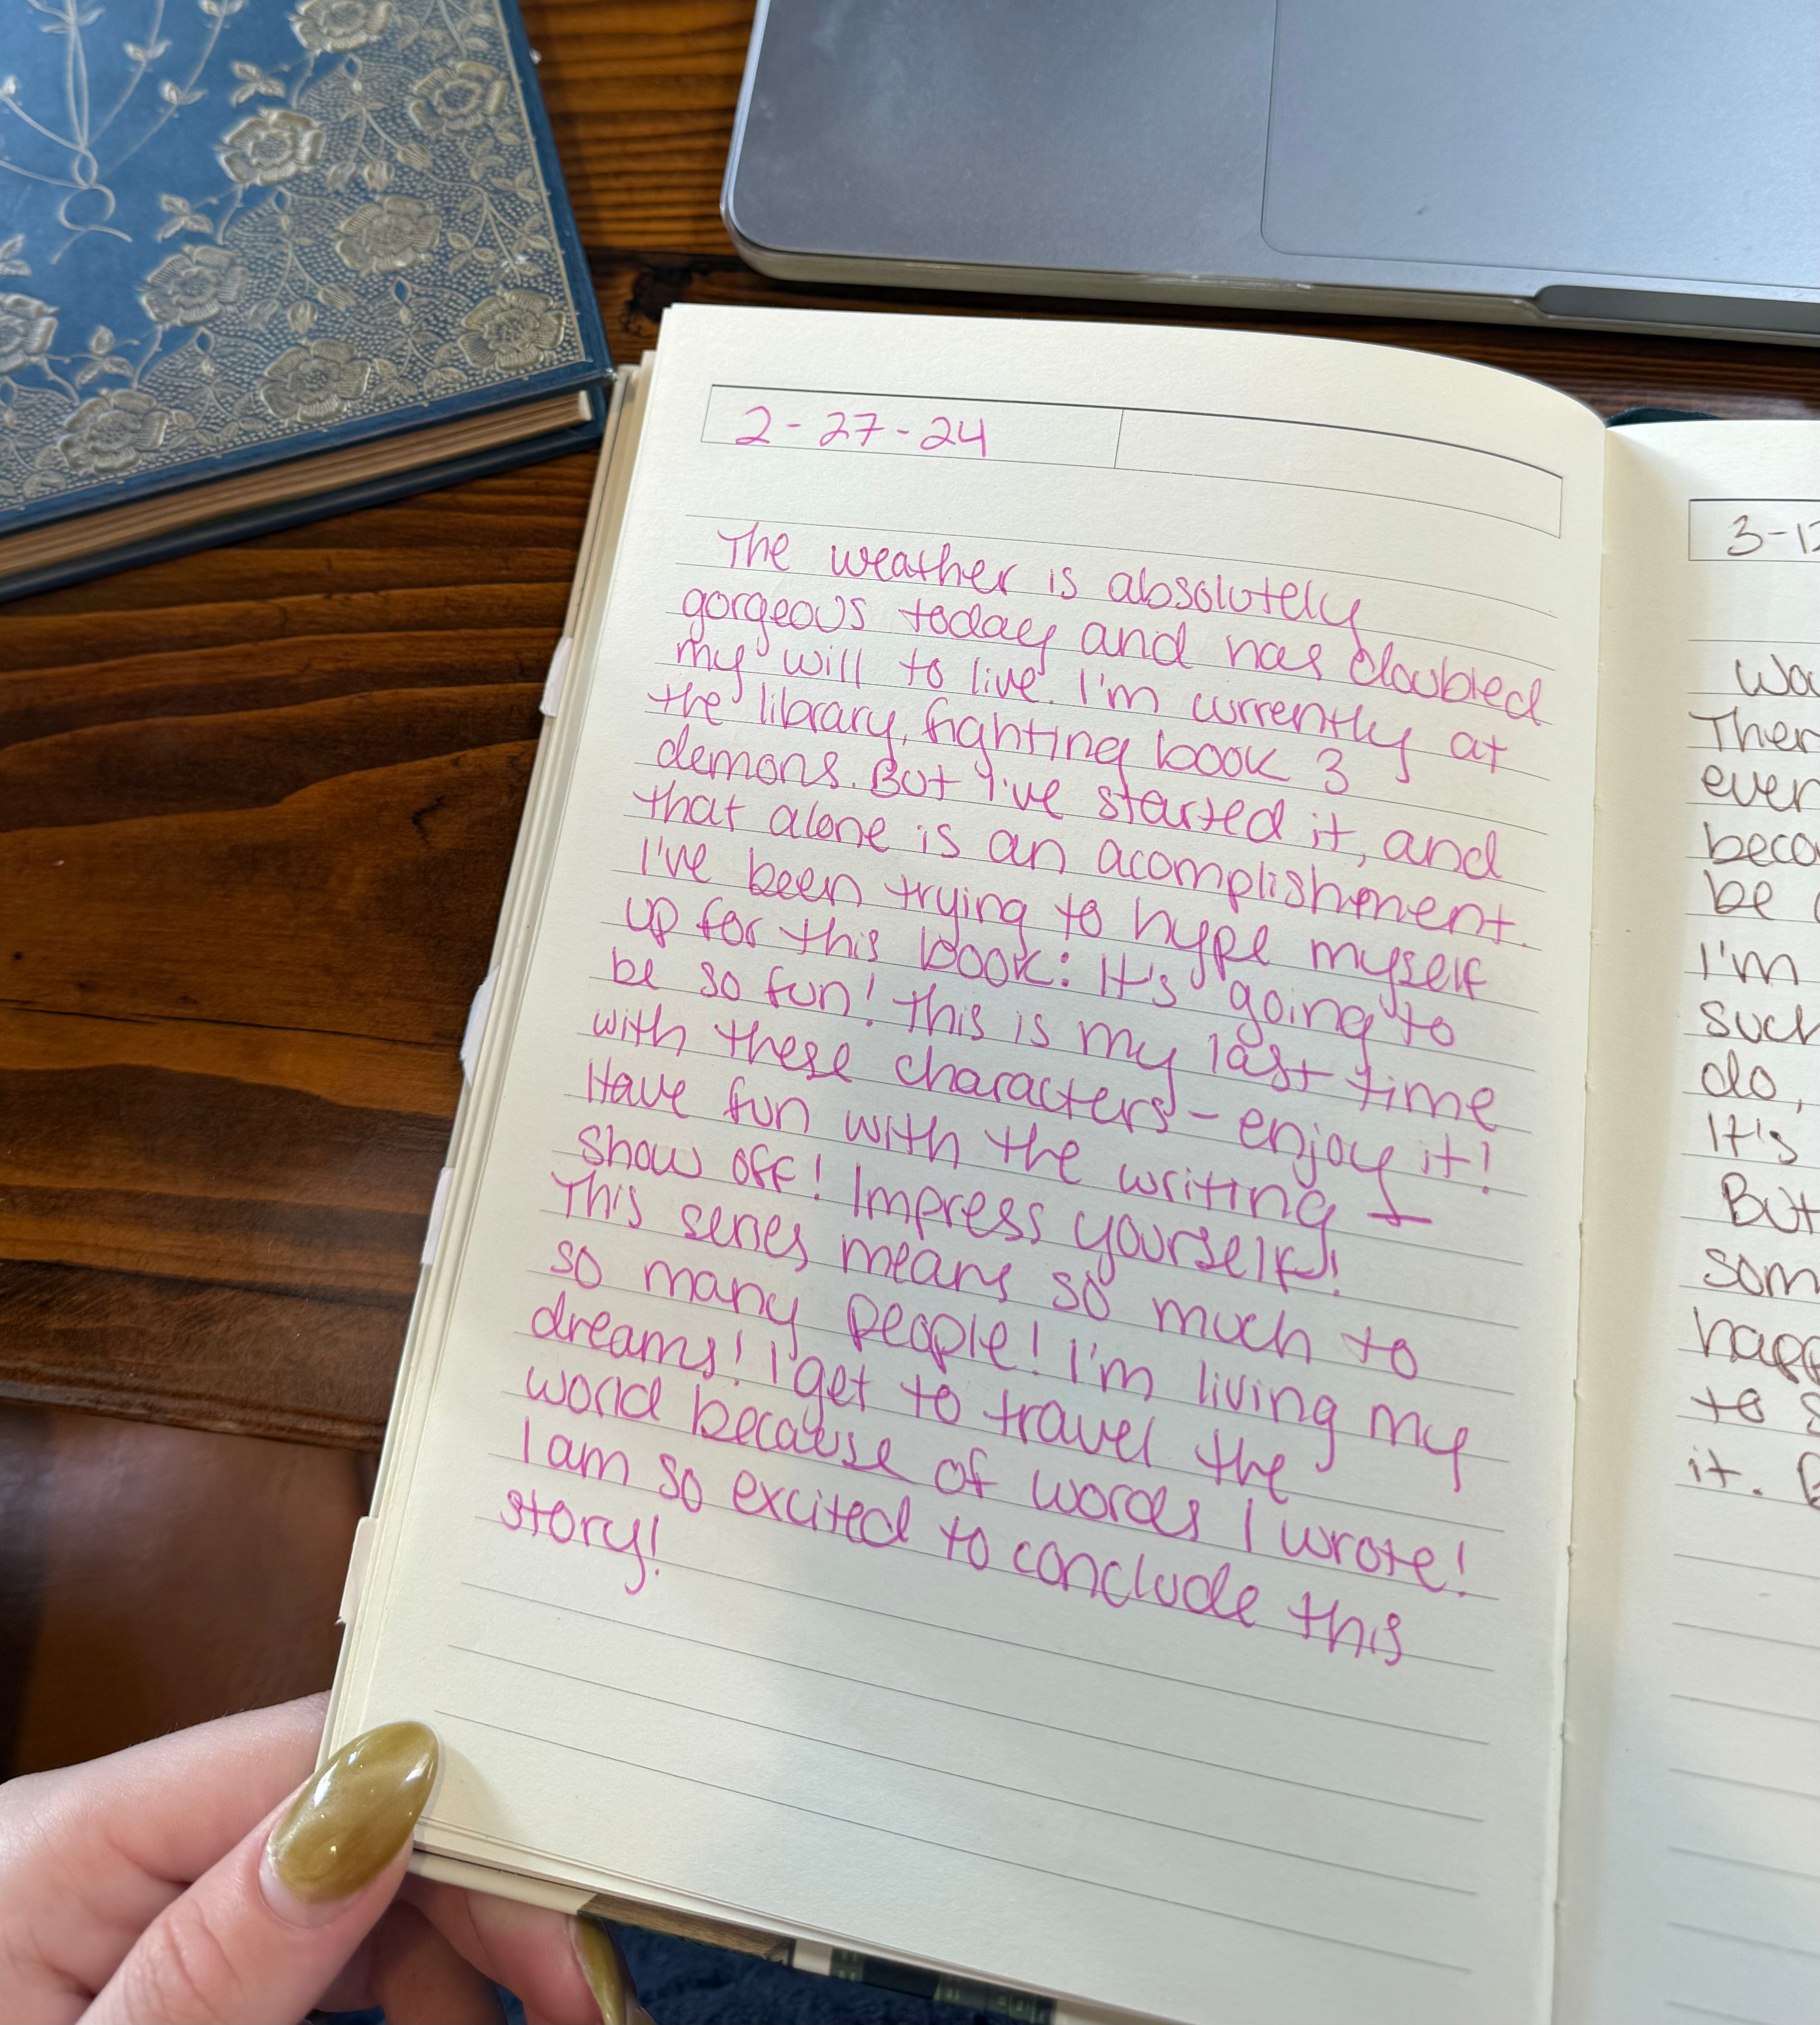 2-27-24
The weather is absolutely
gorgeous today and has doubled
my will to live. I'm currently at
the library, fighting book 3
demons. But I've started it, and
that alone is an acomplishment.
I've been trying to hype myself
up for this book: It's going to
be so fun! This is my last time
with these characters - enjoy it!
Have fun with the writing I
Show off! Impress yourself!
This series means so much to
so many people! I'm living my
dreams! I get to travel the
world because of words I wrote!
I am so excited to conclude this
story!
3-1
Wo
Ther
ever
beco
be
I'm
such
do,
It's
But
som
happ
to s
it.